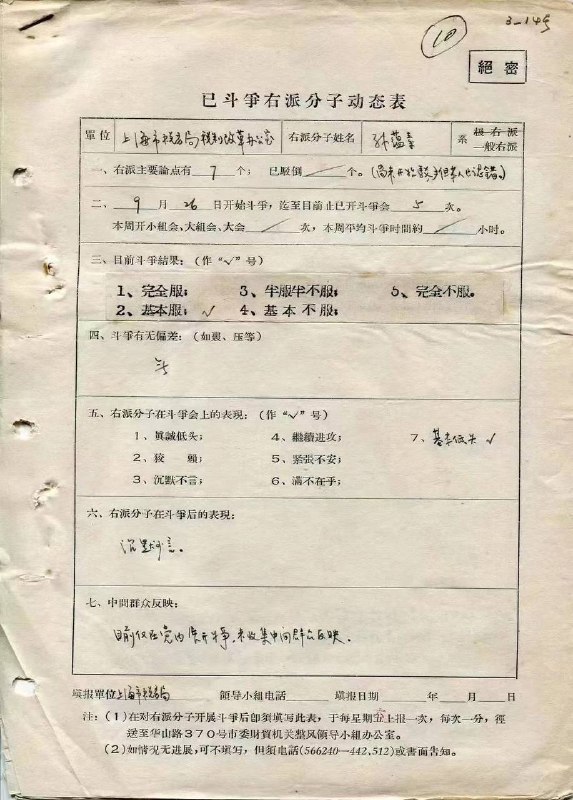 3-14号
10
絕密
已斗爭右派分子动态表
單位 上海市税务局税制改革办公室 右派分子姓名 孙蘊 系 极右派 一般右派
一、右派主要論点有 7 个； 已駁倒 / 个。
二、 9 月 26 日开始斗爭，迄至目前止已开斗爭会 5 次。
本周开小組会、大組会、大会 / 次，本周平均斗爭时間約 / 小时。
三、目前斗爭結果：（作“√”号）
1、完全服； 3、半服半不服； 5、完全不服。
2、基本服； √ 4、基本不服；
四、斗爭有无偏差：（如裹、压等）
五、右派分子在斗爭会上的表現：（作“√”号）
1、眞誠低头； 4、繼續进攻； 7、基本低头 √
2、狡 賴； 5、紧張不安；
3、沉默不言； 6、满不在乎；
六、右派分子在斗爭后的表現：
沉默不言。
七、中間群众反映：
目前仅在党内展开斗争，未收集中间群众反映。
填报單位上海市税务局 領导小組电話 填报日期 年 月 日
注：（1）在对右派分子开展斗爭后卽須填写此表，于每星期五上报一次，每次一分，徑
送至华山路370号市委財貿机关整风領导小組办公室。
（2）如情况无进展，可不填写，但須电話（566240—442,512）或書面告知。